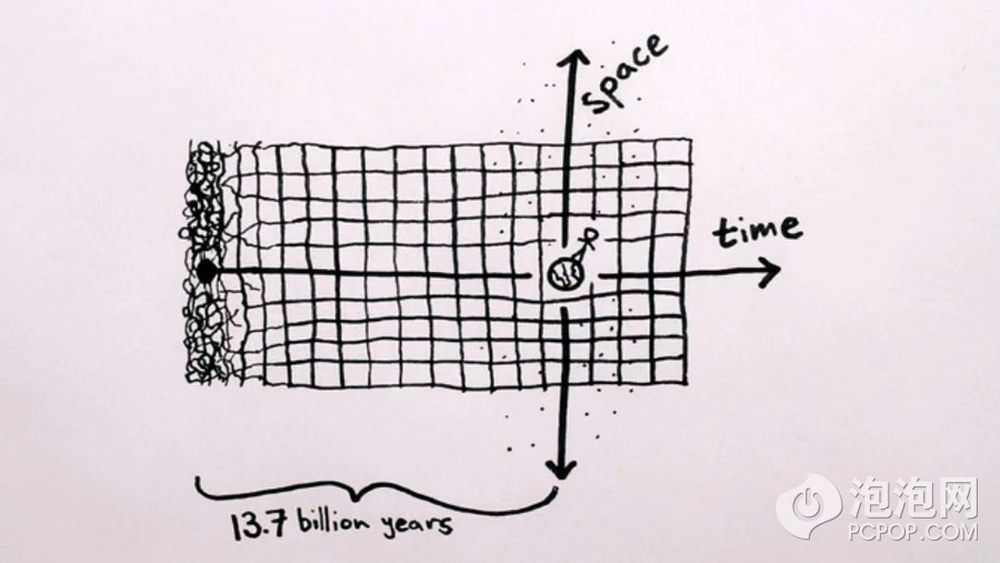 space
time
13.7 billion years
泡泡网
PCPOP.COM